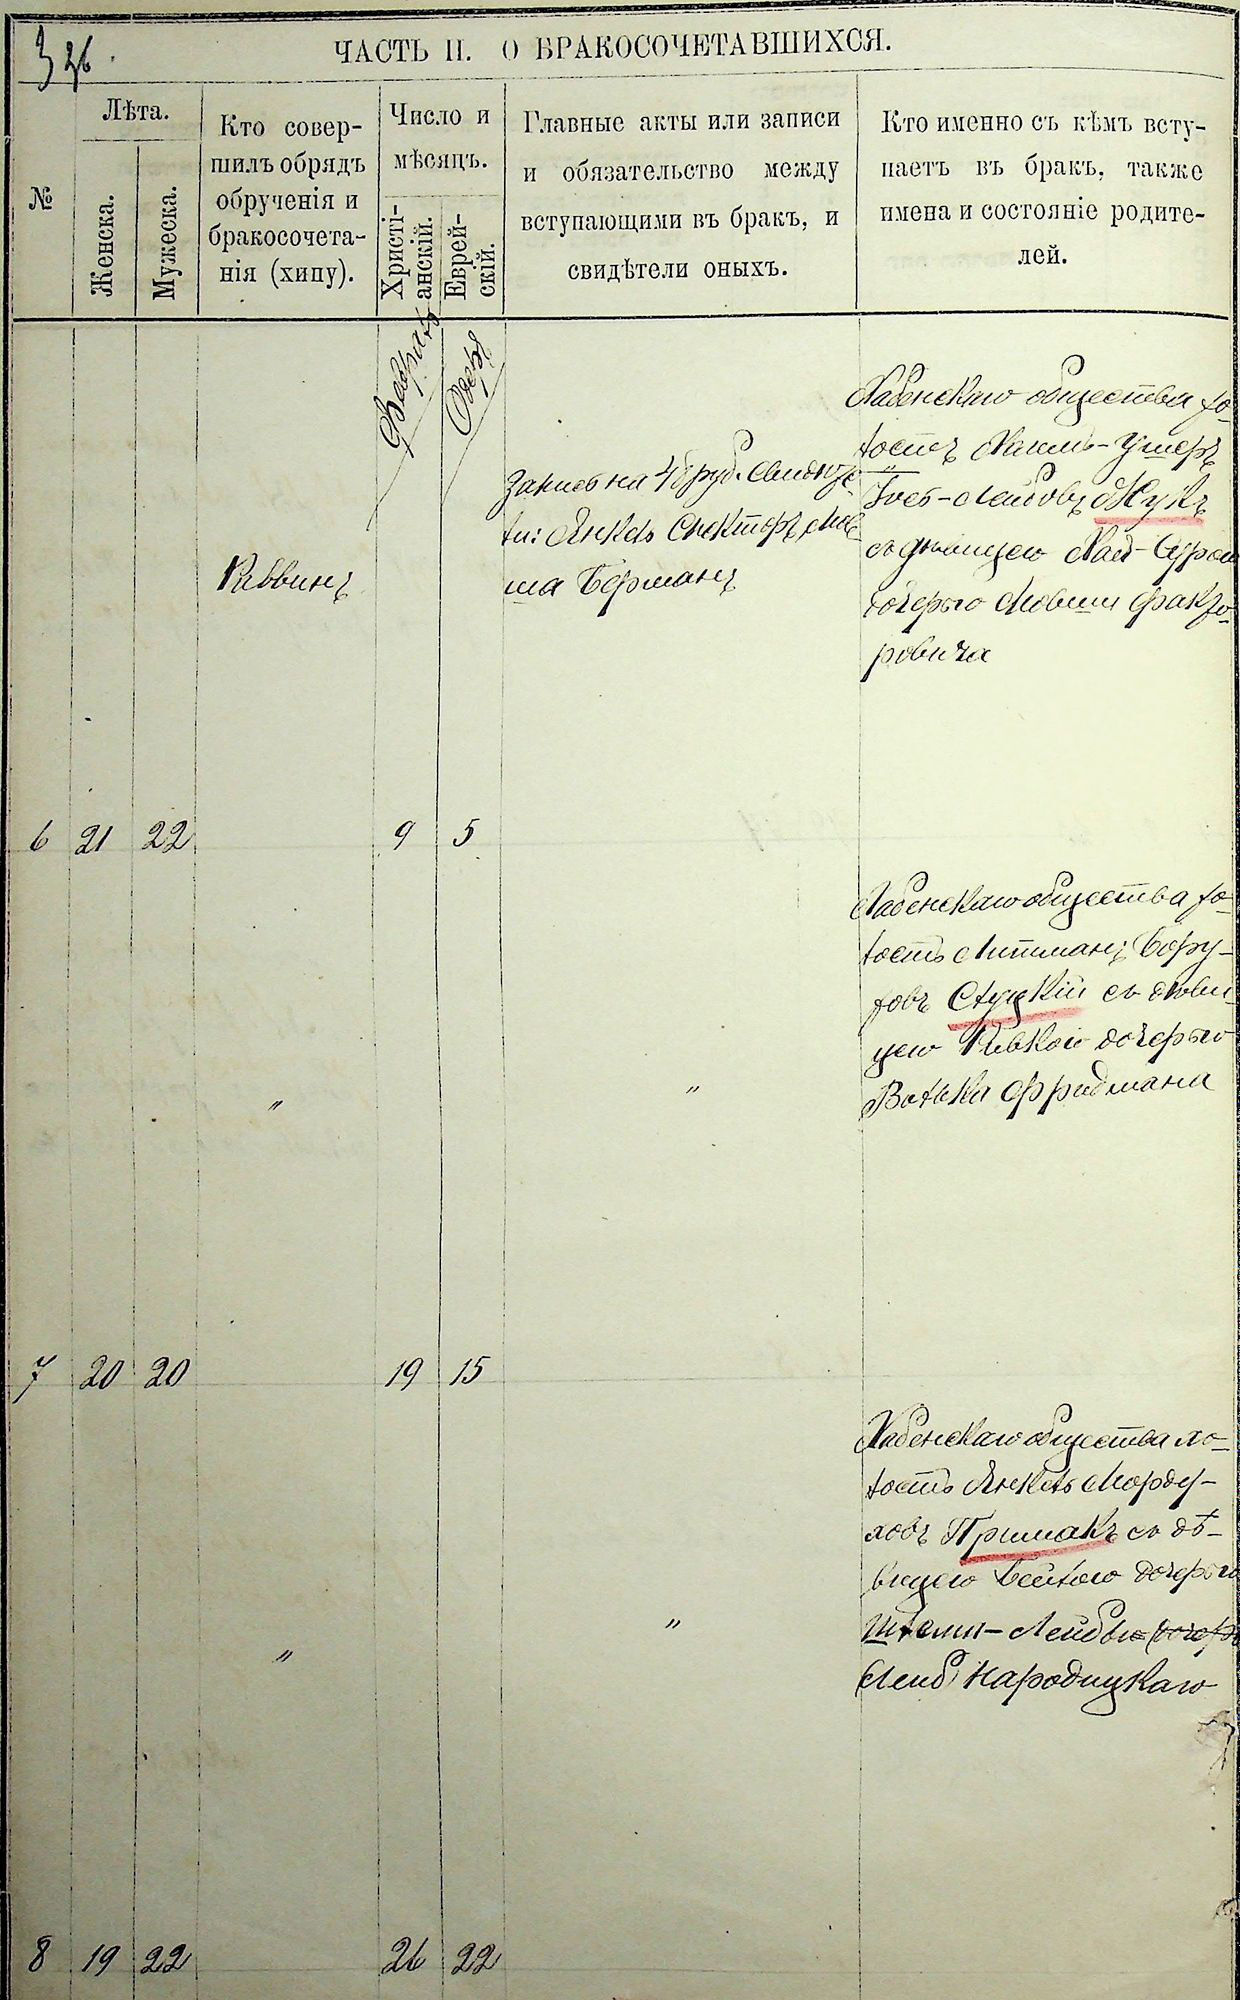 326.
ЧАСТЬ II. О БРАКОСОЧЕТАВШИХСЯ.
№
Лѣта.
Женска.
Мужеска.
Кто совер-
шилъ обрядъ
обрученія и
бракосочета-
нія (хипу).
Число и
мѣсяцъ.
Христі-
анскій.
Еврей-
скій.
Главные акты или записи
и обязательство между
вступающими въ бракъ, и
свидѣтели оныхъ.
Кто именно съ кѣмъ всту-
паетъ въ бракъ, также
имена и состояніе родите-
лей.
6 21 22
Раввинъ
Февраль
9
5
Запись на 48 руб. Свидѣте-
ли: Янкель Спекторъ, Мов-
ша Берманъ
Хабенскаго общества хо-
лостъ Хаимъ-Ушеръ
Іосъ-Лейбовъ Жукъ
съ дѣвицею Хаей-Сурой
дочерью Мовши Факто-
ровича
7 20 20
"
19 15
"
Хабенскаго общества хо-
лостъ Литманъ Бору-
ховъ Слуцкій съ дѣви-
цею Ривкой дочерью
Волька Фридмана
8 19 22
"
26 22
"
Хабенскаго общества хо-
лостъ Янкель Морду-
ховъ Примакъ съ дѣ-
вицею Бейлою дочерью
Шлемы-Лейбы
(Лейб) Народицкаго